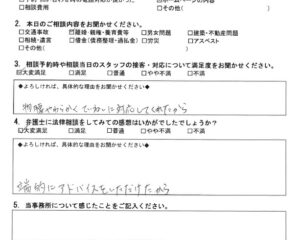 □相談費用 □その他( )
2. 本日のご相談内容をお聞かせください。
□交通事故 ☑離婚・親権・養育費など □男女問題 □建築・不動産問題
□相続・遺言 □借金(債務整理・過払金) □労災 □アスベスト
□その他( )
3. 相談予約時や相談当日のスタッフの接客・対応について満足度をお聞かせください。
☑大変満足 □満足 □普通 □やや不満 □不満
◆よろしければ、具体的な理由をお聞かせください◆
物腰やわらかくていねいに対応してくれたから
4. 弁護士に法律相談をしてみての感想はいかがでしたでしょうか?
☑大変満足 □満足 □普通 □やや不満 □不満
◆よろしければ、具体的な理由をお聞かせください◆
端的にアドバイスをいただけたから
5. 当事務所について感じたことをご記入ください。